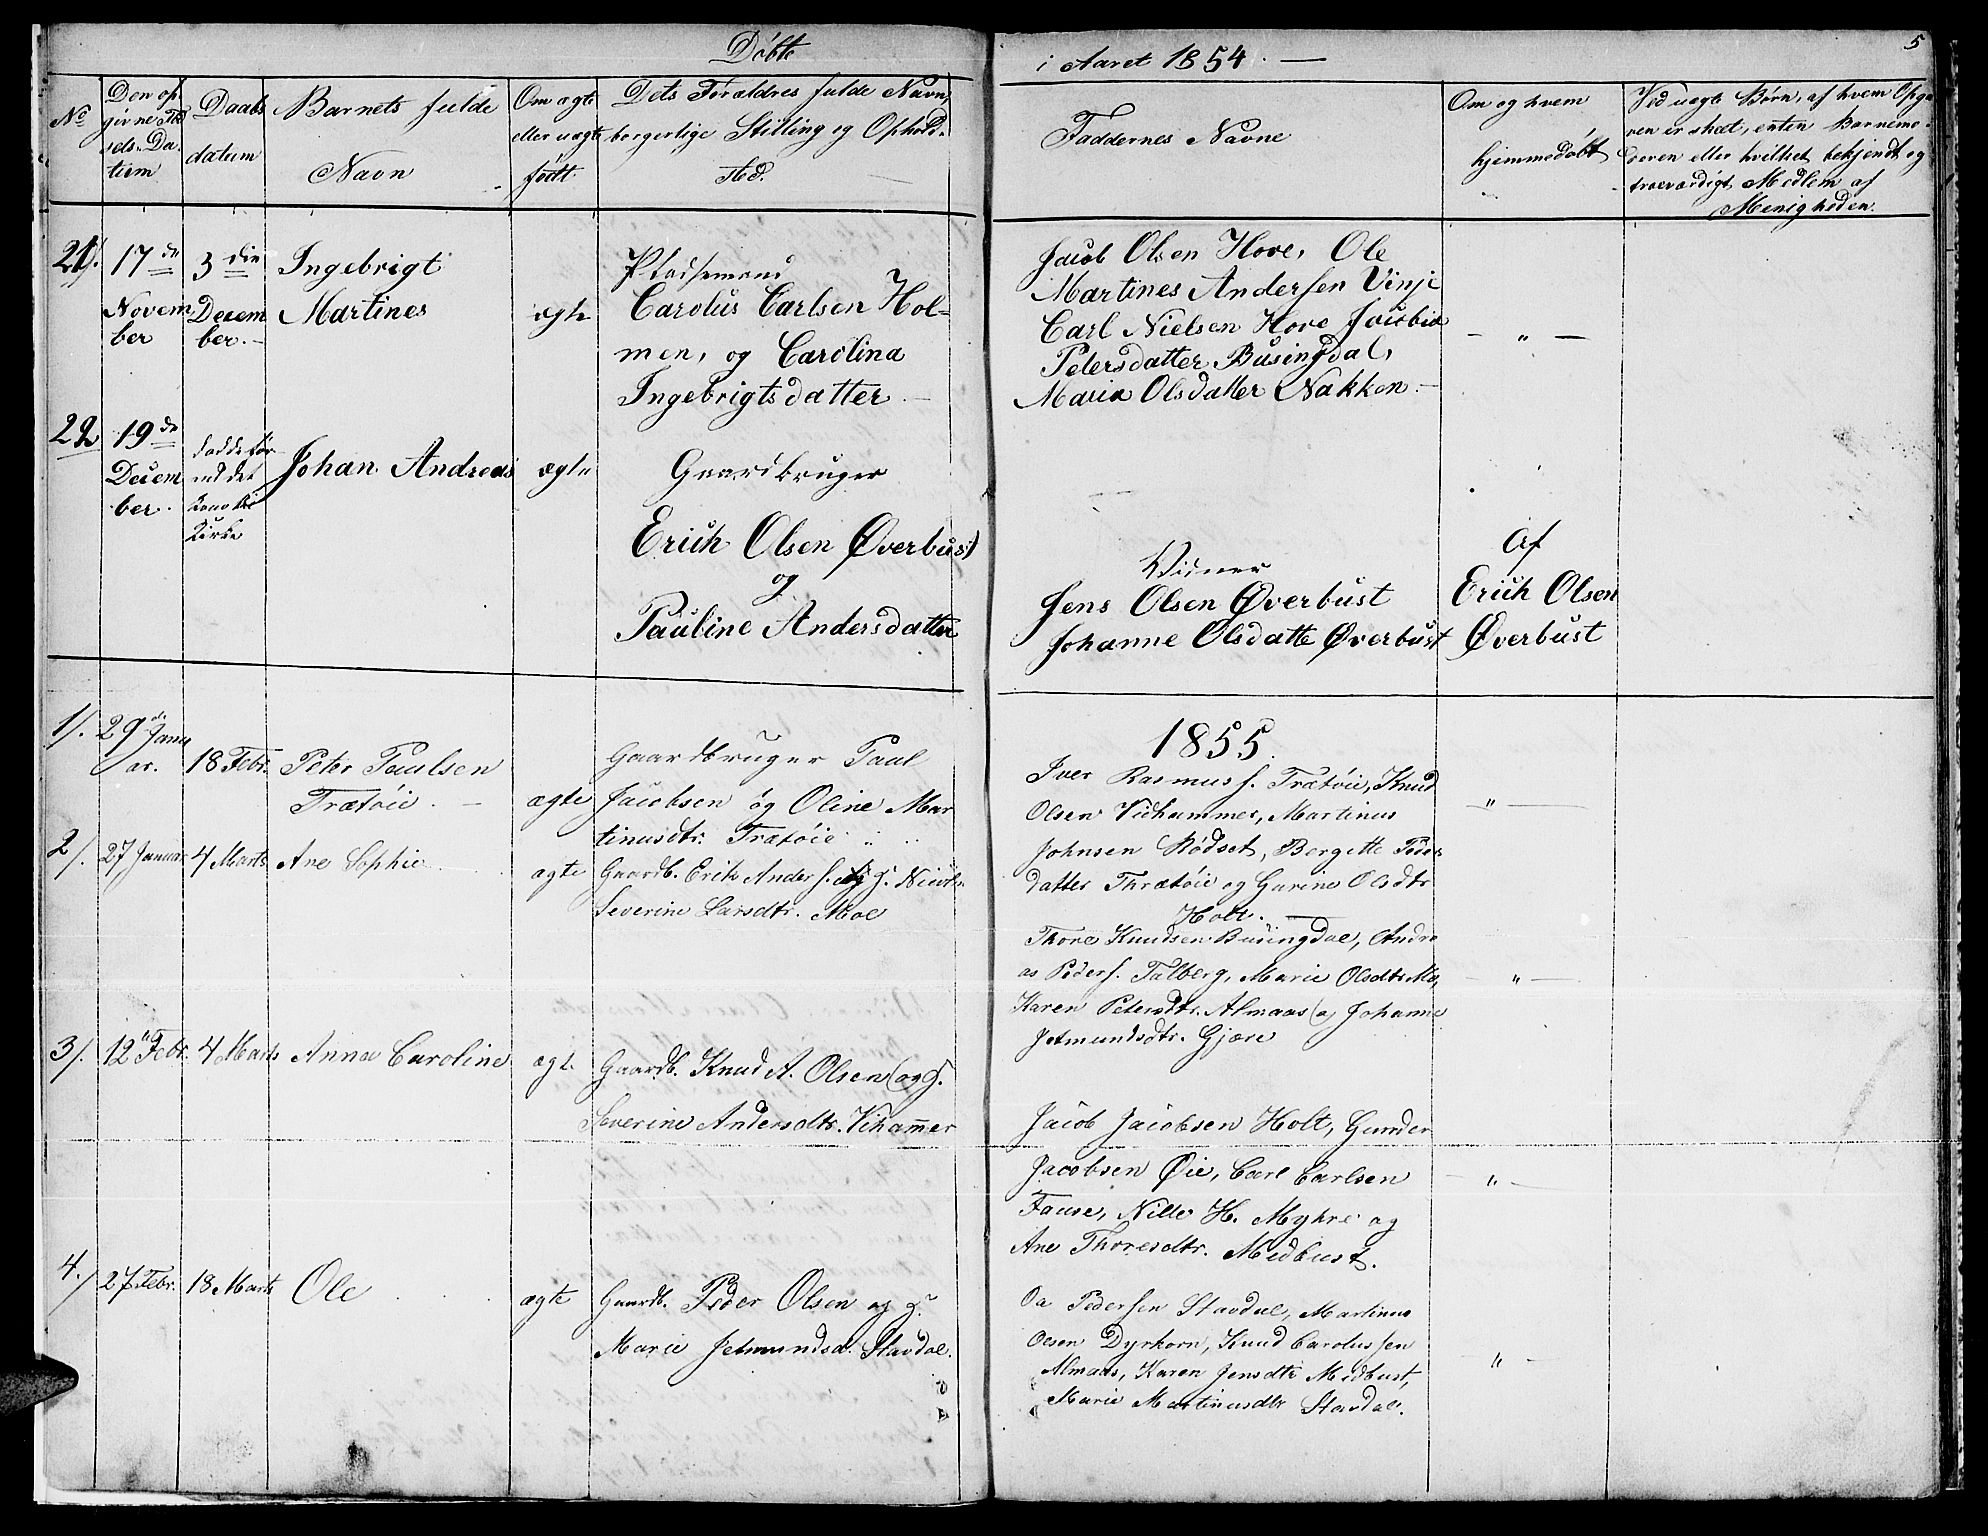 Döbte
i Aaret 1854. —
5
No
Den op-
givne Fød
sels-Da-
tum
Daabs
datum
Barnets fulde
Navn
Om ægte
eller uægte
født.
Dets Forældres fulde Navn,
borgerlige Stilling og Opholds-
sted.
Faddernes Navne
Om og hvem
hjemmedøbt
Ved uægte Børn, af hvem Opga
ven er skeet, enten Barnemo-
deren eller hvilket bekjendt og
troeværdigt Medlem af
Menigheden.
21/.
17de
Novem
ber
3die
Decem
ber.-
Ingebrigt
Martines
ægte
Pladsemand
Carolus Carlsen Hol-
men, og Carolina
Ingebrigtsdatter. -
Jacob Olsen Hove, Ole
Martines Andersen Vinje
Carl Nielsen Hove
Petersdatter Busingdal,
Maria Olsdatter Nakken. -
- " -
22
19de
Decem
ber.
døde før
end det
kom til
Kirke
Johan Andreas
ægte
Gaardbruger
Erich Olsen Øverbust
og
Pauline Andersdatter
Vidner
Jens Olsen Øverbust
Johanne Olsdatte Øverbust
Af
Erich Olsen
Øverbust
1855.
1/.
29de Janu
ar.
18 Febr.
Peter Paulsen
Trætøie. -
ægte
Gaardbruger Paul
Jacobsen og Oline Mar
tinusdtr. Trætøie
Iver Rasmuss. Trætøie, Knud
Olsen Vidhammer, Martinus
Johnsen Rødset, Bergitte Peders
datter Thrætøie og Gurine Olsdtr
Holt. -
" -
2/.
27 Januar
4 Marts
Ane Sophie
ægte
Gaardb. Erik Anders. og H.
Severine Larsdtr. Moe
Thore Knudsen Busingdal, Andre
as Peders. Talberg, Marie Olsdtr Mo,
Karen Petersdtr. Almaas og Johanne
Jetmundsdtr. Gjære
- " -
3/.
12 Febr.
4 Marts
Anna Caroline
ægt.
Gaardb. Knud A. Olsen (og H.
Severine Andersdtr. Vihammer
Jacob Jacobsen Holt, Gunder
Jacobsen Øie, Carl Carlsen
Fause, Nille H. Myhre og
Ane Thoresdtr. Medbust.
- " -
4./
27 Febr.
18 Marts
Ole
ægte
Gaardb. Peder Olsen og H.
Marie Jetmundsd. Stavdal.
Ola Pedersen Stavdal, Martinus
Olsen Dyrkorn, Knud Carolussen
Almaas, Karen Jensdtr Medbust,
Marie Martinusdtr Stavdal.
" -